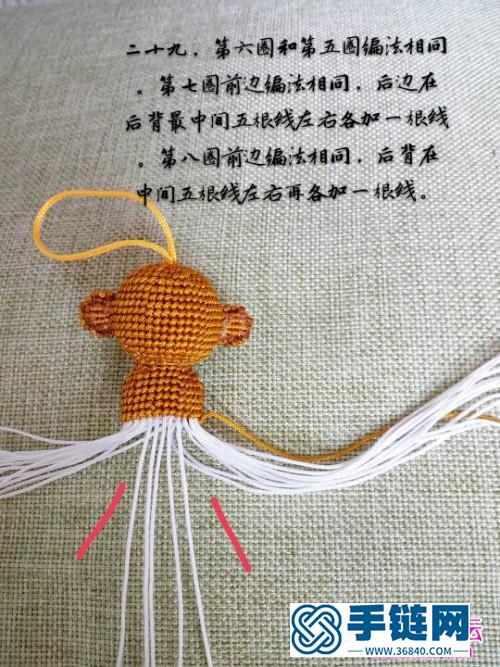 二十九，第六圈和第五圈编法相同
。第七圈前边编法相同，后边在
后背最中间五根线左右各加一根线
。第八圈前边编法相同，后背在
中间五根线左右再各加一根线。
手链网
www.36840.com